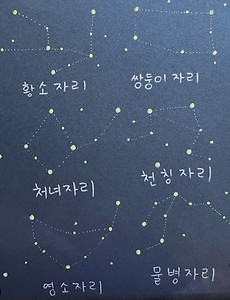 황소자리
쌍둥이자리
처녀자리
천칭자리
염소자리
물병자리